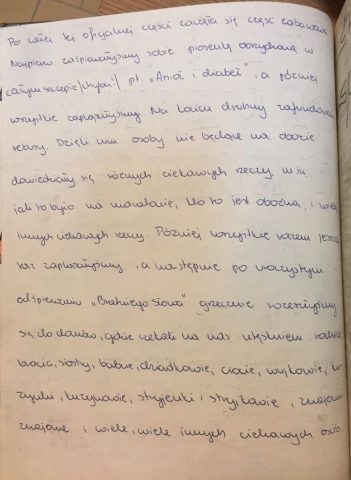 Po całej tej oficjalnej części zaczęła się część zabawowa
Najpierw zaśpiewałyśmy sobie piosenkę obrzędową w
całym szczepie (chyba!) pt. „Anioł i diabeł”, a później
wszystkie zapląsałyśmy. Na końcu druhny zafundowały
kekusy. Dzięki temu osoby nie będące na obozie
dowiedziały się różnych ciekawych rzeczy m.in.
jak to było na maratonie, kto to jest oboźna, i wiele
innych ciekawych rzeczy. Później wszystkie razem jeszcze
raz zapląsałyśmy, a następnie po uroczystym
odśpiewaniu „Bratniego Słowa” grzecznie rozeszłyśmy
się do domów, gdzie czekali na nas utęsknieni rodzice
bracia, siostry, babcie, dziadkowie, ciocie, wujkowie, ku-
zynki, kuzynowie, stryjenki i stryjkowie, znajomi
znajome i wiele, wiele innych ciekawych osób.